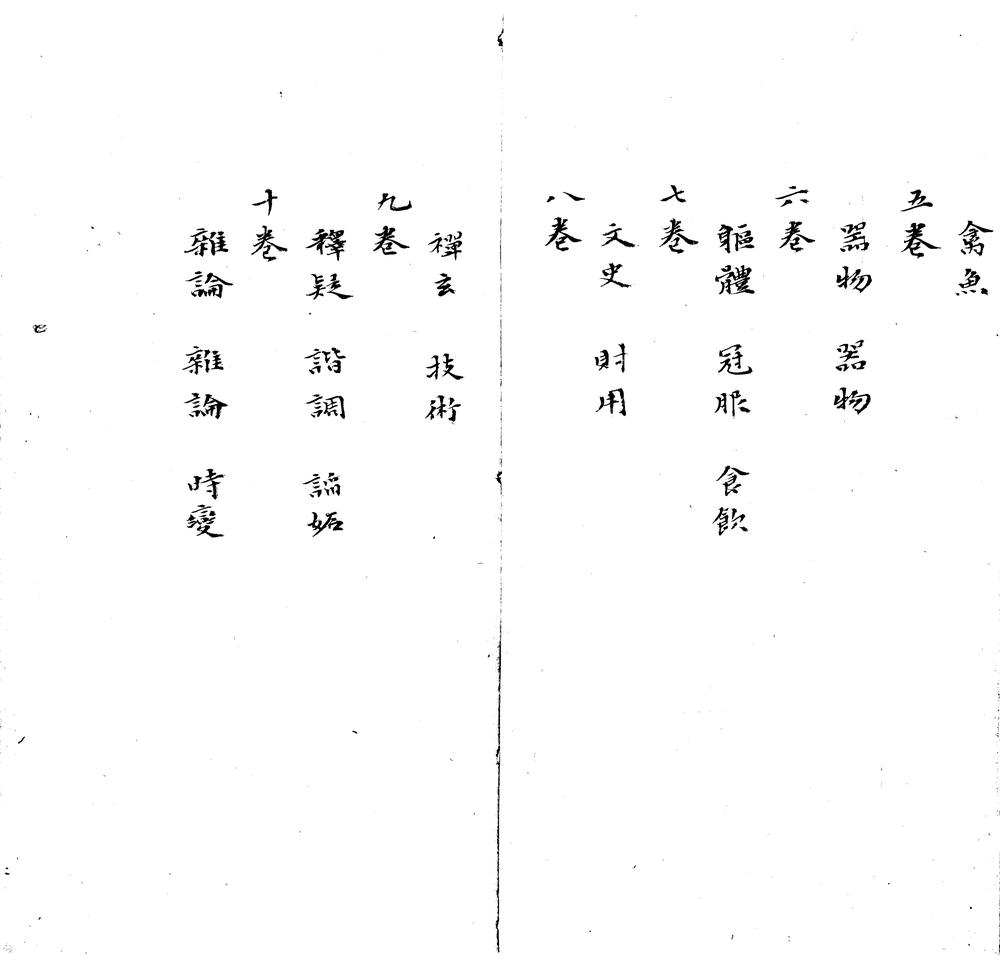 禽魚
五卷
器物 器物
六卷
軀體 冠服 食飲
七卷
文史 財用
八卷
禪玄 技術
九卷
釋疑 諧調 謡妬
十卷
雜論 雜論 時變